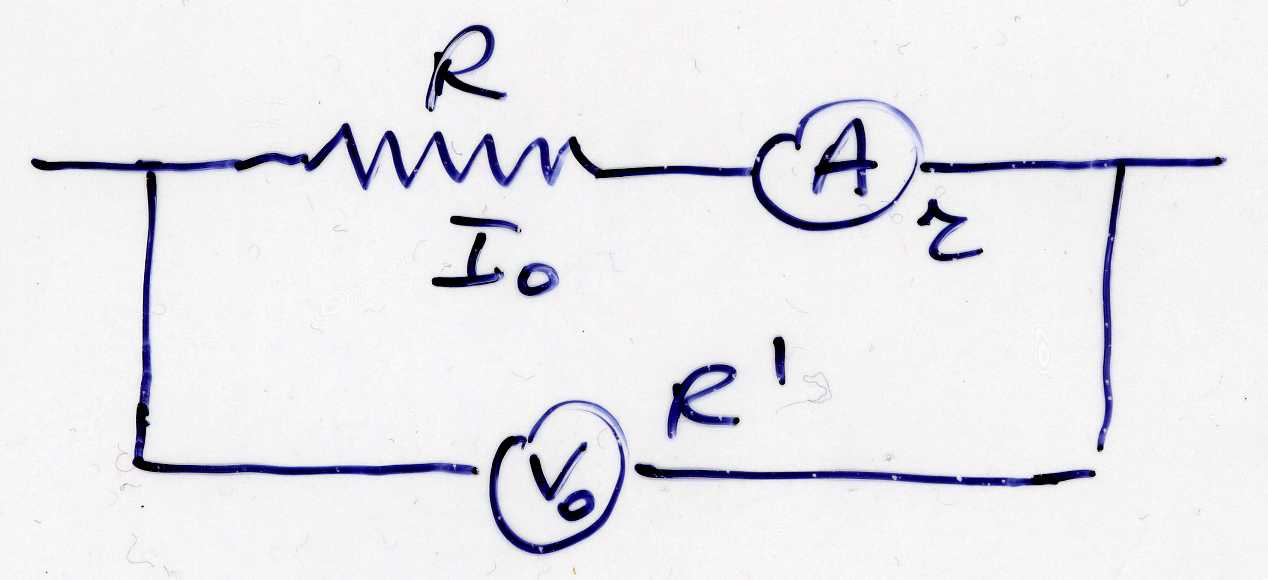 R
A
r
I₀
R'
V₀